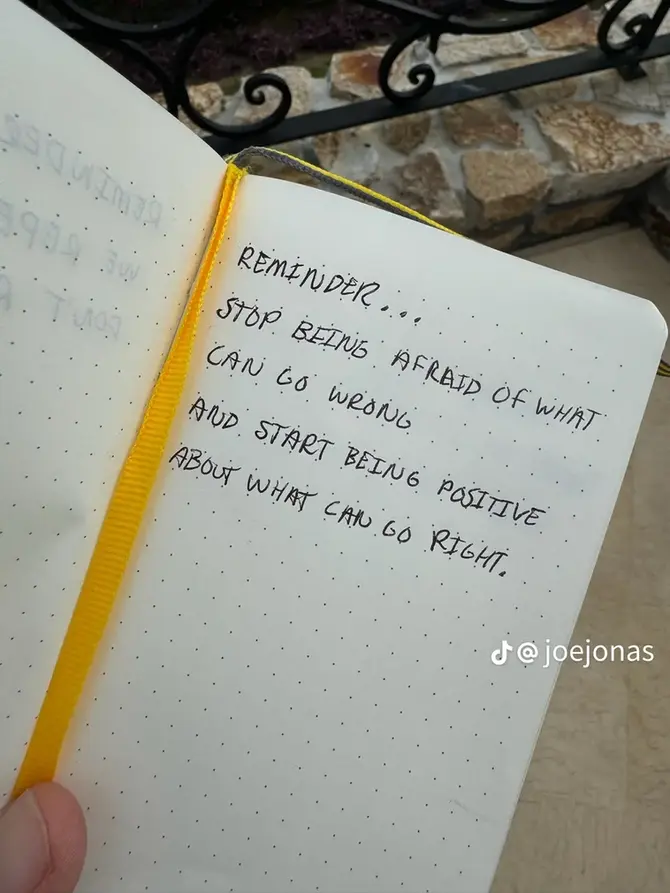 REMINDER...
STOP BEING AFRAID OF WHAT
CAN GO WRONG
AND START BEING POSITIVE
ABOUT WHAT CAN GO RIGHT.
@joejonas
REMINDER
WE REPE
DON'T